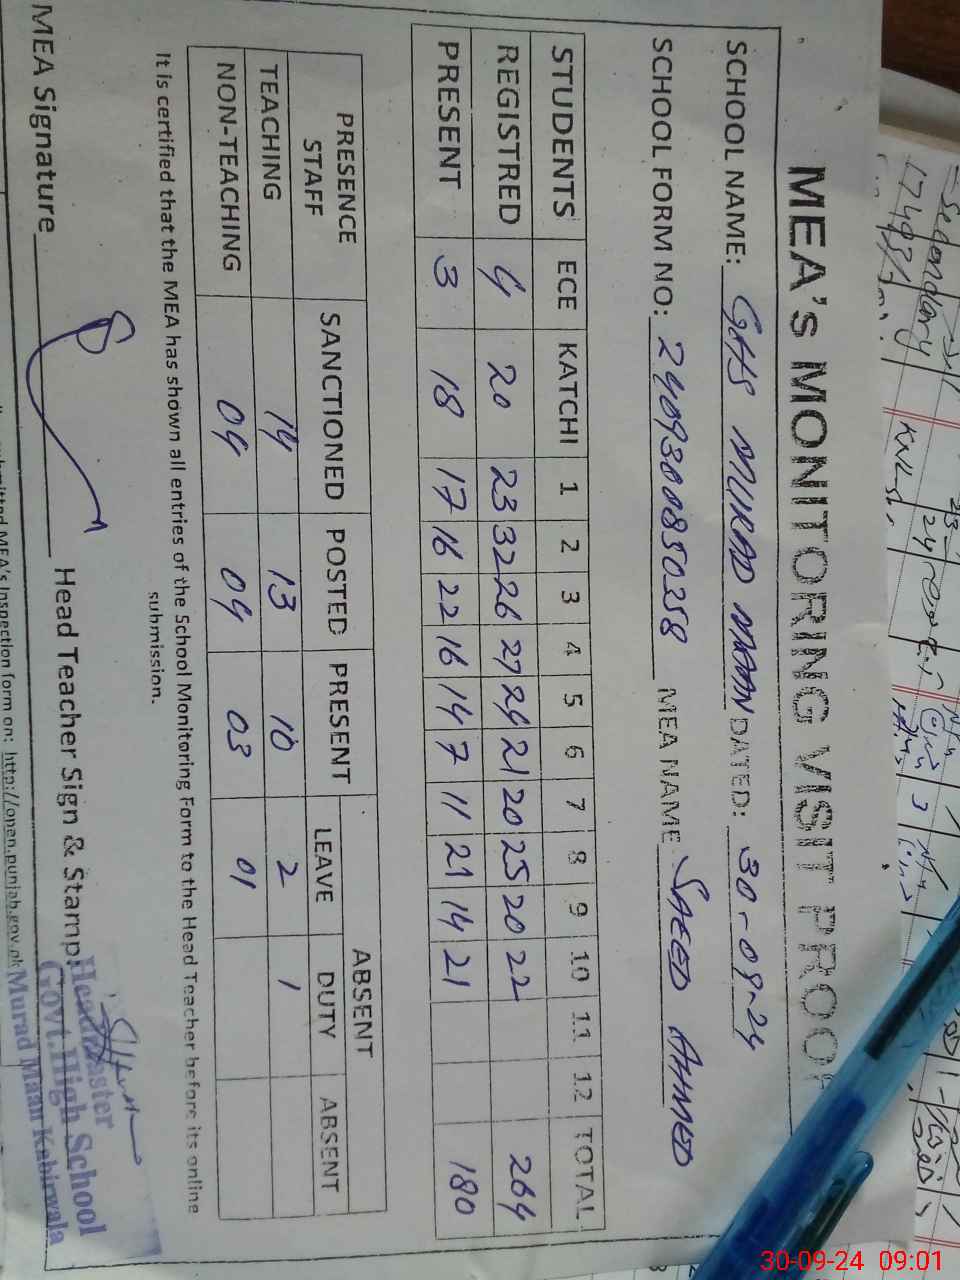 MEA's MONITORING VISIT PROOF
SCHOOL NAME: GHS MURAD MAAN DATED: 30-09-24
SCHOOL FORM NO: 2409300850258 MEA NAME SAEED AHMED
STUDENTS ECE KATCHI 1 2 3 4 5 6 7 8 9 10 11 12 TOTAL
REGISTRED 4 20 23 32 26 27 24 21 20 25 20 22 264
PRESENT 3 18 17 16 22 16 14 7 11 21 14 21 180
PRESENCE STAFF SANCTIONED POSTED PRESENT ABSENT
LEAVE DUTY ABSENT
TEACHING 14 13 10 2 1
NON-TEACHING 04 04 03 01
It is certified that the MEA has shown all entries of the School Monitoring Form to the Head Teacher before its online
submission.
MEA Signature Head Teacher Sign & Stamp:
Headmaster
Govt. High School
Murad Maan Kabirwala
submitted MEA's Inspection form on: http://open.punjab.gov.pk
30-09-24 09:01